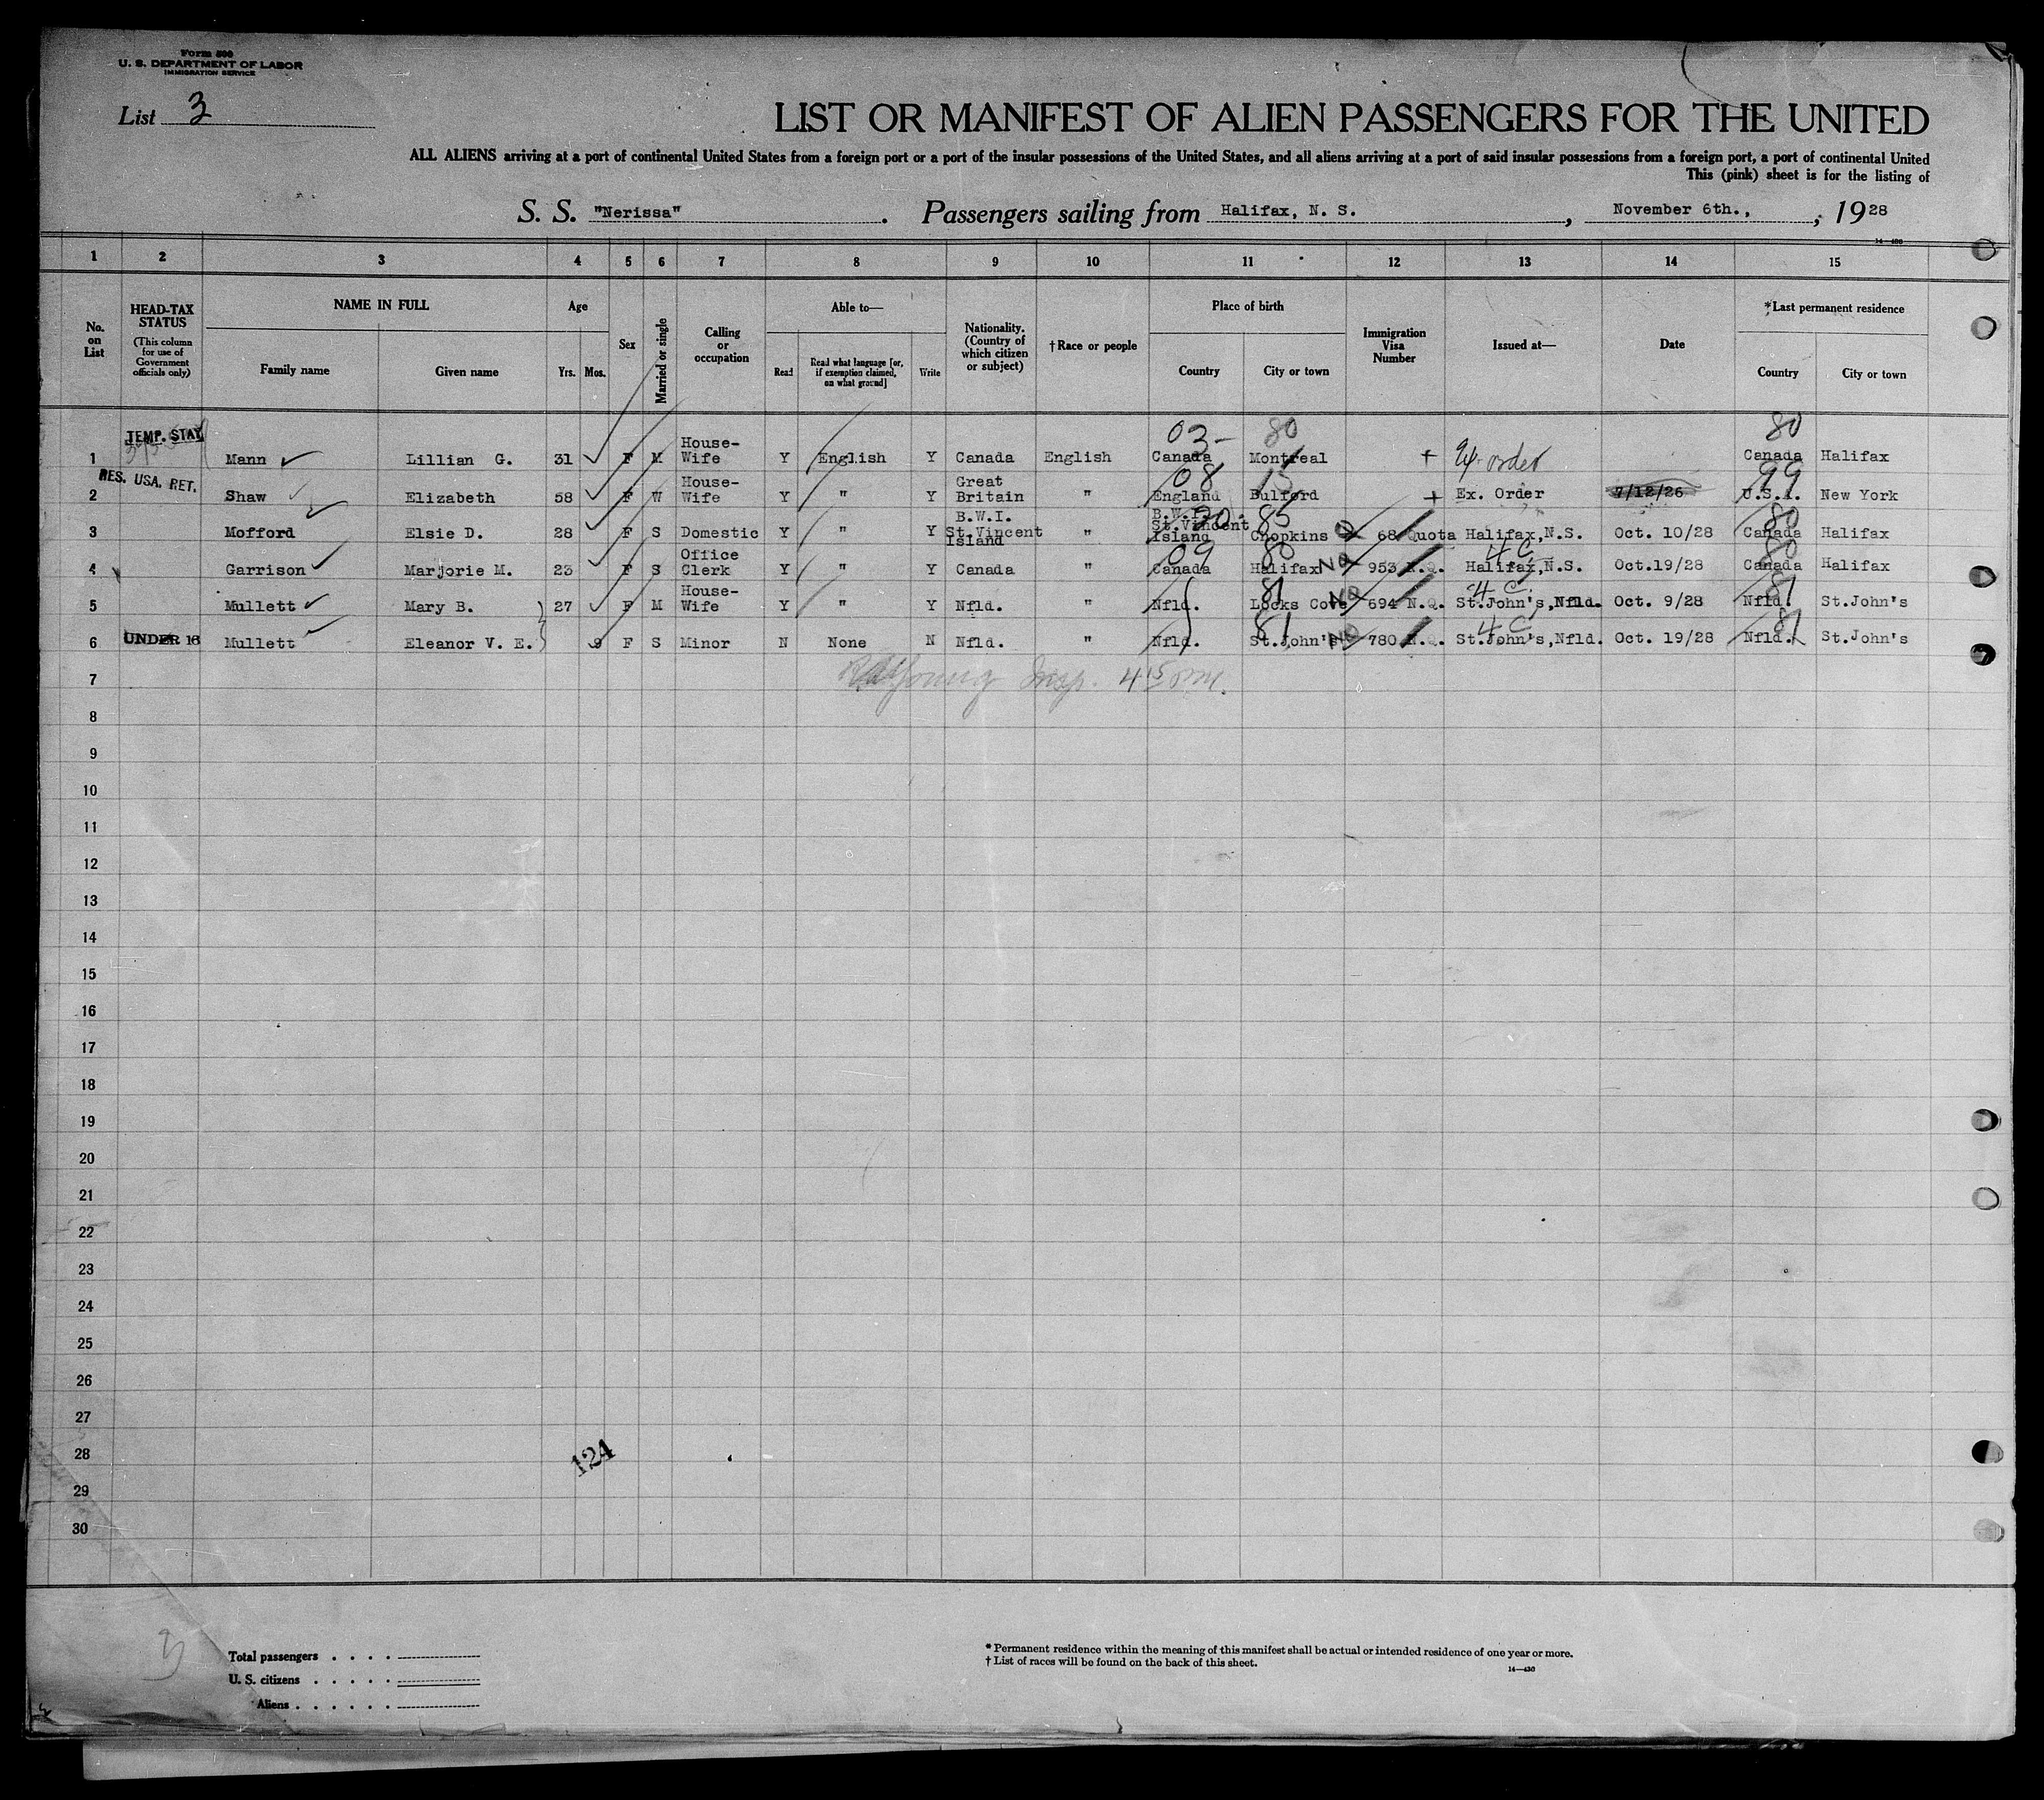 Form 500
U. S. DEPARTMENT OF LABOR
IMMIGRATION SERVICE
List 3
LIST OR MANIFEST OF ALIEN PASSENGERS FOR THE UNITED
ALL ALIENS arriving at a port of continental United States from a foreign port or a port of the insular possessions of the United States, and all aliens arriving at a port of said insular possessions from a foreign port, a port of continental United
This (pink) sheet is for the listing of
S. S. "Nerissa". Passengers sailing from Halifax, N. S., November 6th., , 1928
14—430
1 2 3 4 5 6 7 8 9 10 11 12 13 14 15
No. on List
HEAD-TAX STATUS (This column for use of Government officials only)
NAME IN FULL
Family name Given name
Age
Yrs. Mos.
Sex
Married or single
Calling or occupation
Able to—
Read Read what language [or, if exemption claimed, on what ground] Write
Nationality. (Country of which citizen or subject)
†Race or people
Place of birth
Country City or town
Immigration Visa Number
Issued at—
Date
*Last permanent residence
Country City or town
TEMP. STAY 03- 80 80
1 Mann Lillian G. 31 F M House-Wife Y English Y Canada English Canada Montreal + Ex. order Canada Halifax
RES. USA. RET. 08 15 99
2 Shaw Elizabeth 58 F W House-Wife Y " Y Great Britain " England Bulford + Ex. Order 7/12/26 U.S.A. New York
20 85 80
3 Mofford Elsie D. 28 F S Domestic Y " Y B.W.I. St.Vincent Island " B.W.I. St.Vincent Island Chopkins Q 68 Quota Halifax,N.S. Oct. 10/28 Canada Halifax
09 80 4C 80
4 Garrison Marjorie M. 23 F S Office Clerk Y " Y Canada " Canada Halifax NQ 953 N.Q. Halifax,N.S. Oct.19/28 Canada Halifax
81 4C 81
5 Mullett Mary B. 27 F M House-Wife Y " Y Nfld. " Nfld. Locks Cove NQ 694 N.Q. St.John's,Nfld. Oct. 9/28 Nfld. St.John's
81 4C 81
6 UNDER 16 Mullett Eleanor V. E. 9 F S Minor N None N Nfld. " Nfld. St.John's NQ 780 N.Q. St.John's,Nfld. Oct. 19/28 Nfld. St.John's
7 Young Insp. 4 15 pm.
8
9
10
11
12
13
14
15
16
17
18
19
20
21
22
23
24
25
26
27
28 124
29
30
Total passengers . . . .
U. S. citizens . . . . .
Aliens . . . . . .
* Permanent residence within the meaning of this manifest shall be actual or intended residence of one year or more.
† List of races will be found on the back of this sheet.
14—430